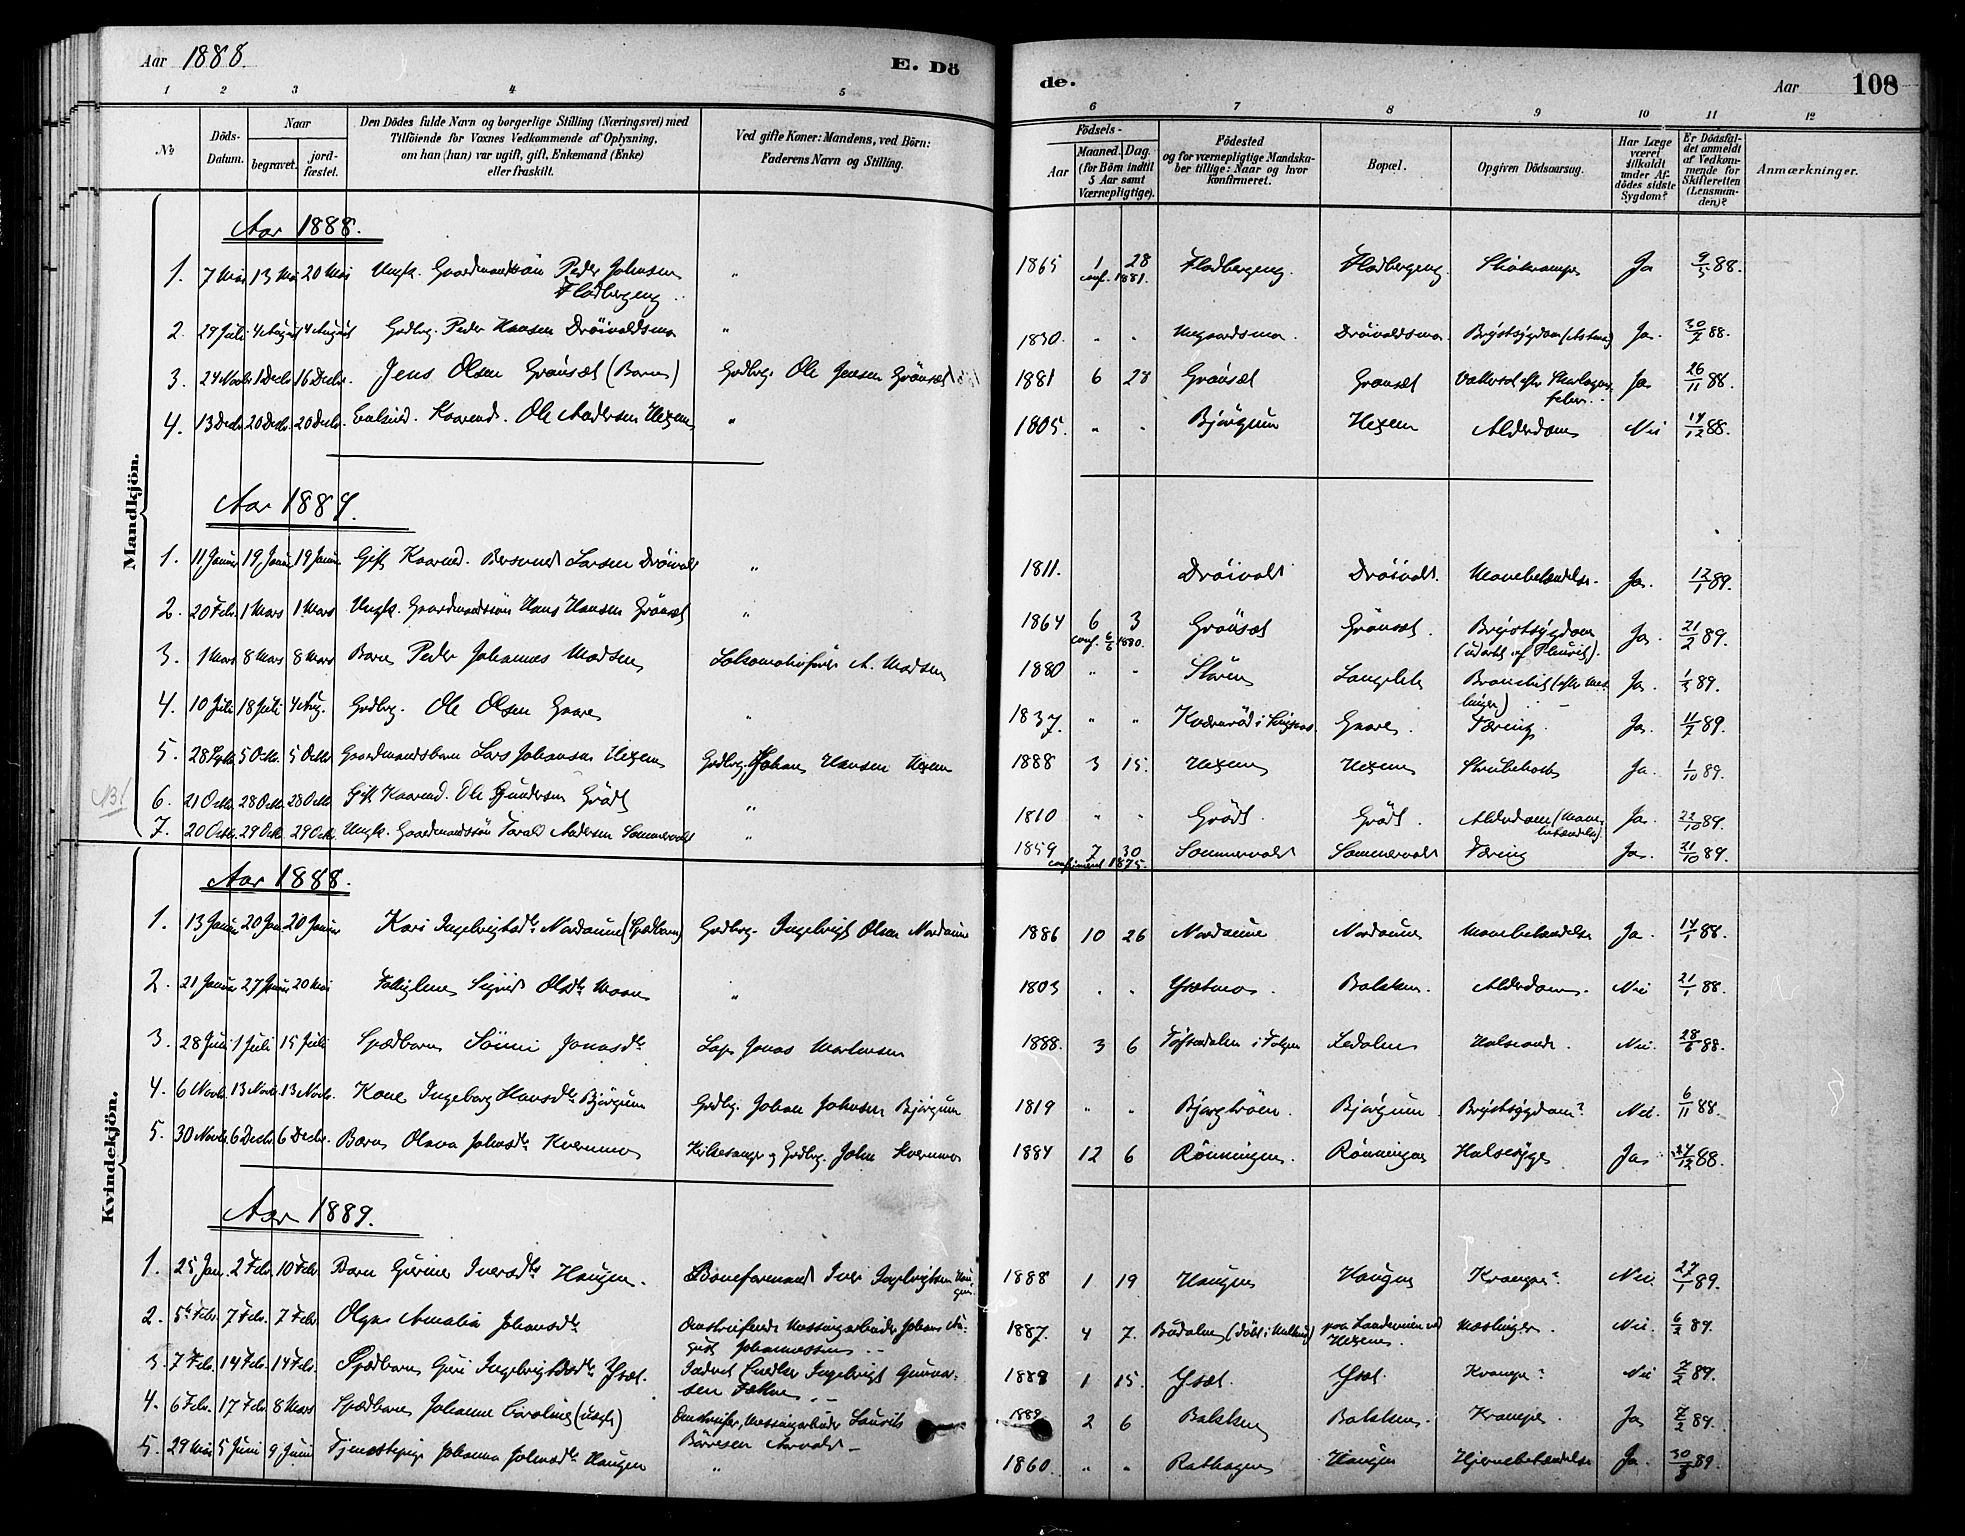 Aar 1888. E. Dö
de. Aar 108
1 2 3 4 5
6 7 8 9 10 11 12
№ Döds-Datum. Naar begravet. jordfæstet. Den Dödes fulde Navn og borgerlige Stilling (Næringsvei) med Tilföiende for Voxnes Vedkommende af Oplysning, om han (hun) var ugift, gift, Enkemand (Enke) eller fraskilt. Ved gifte Koner: Mandens, ved Börn: Faderens Navn og Stilling.
Födsels- Aar Maaned. Dag. (for Börn indtil 5 Aar samt Værnepligtige). Födested og for værnepligtige Mandskaber tillige: Naar og hvor konfirmeret. Bopæl. Opgiven Dödsaarsag. Har Læge været tilkaldt under Afdödes sidste Sygdom? Er Dödsfaldet anmeldt af Vedkommende for Skifteretten (Lensmanden)? Anmærkninger.
Mandkjön.
Aar 1888.
1. 7 Mai 13 Mai 20 Mai Ungk. Gaardmandssön Peder Johnsen Flodbergeng. " 1865 1 28 conf. 1881. Flodbergeng. Flodbergeng. Ja 9/5 88.
2. 29 Juli 4 August 4 August Grdbrg. Peder Hansen Dröivoldsmo " 1830. " " Dröivoldsmo Brystsygdom (Astma) Ja. 30/7 88.
3. 24 Novbr. 1 Decbr. 16 Decbr. Jens Olsen Grönsæt (Barn) Grdbrg. Ole Jensen Grönsæt 1881 6 28 Grönsæt Grönsæt Vattersot efter Skarlagensfeber. Ja. 26/11 88.
4. 13 Decbr. 20 Decbr. 20 Decbr. Kaarend. Ole Andersen Hexem " 1805. " " Bjørgum Hexem Alderdom Nei 14/12 88.
Aar 1889.
1. 11 Januar 19 Januar 19 Januar Gift Kaarend. Bersvend Larsen Dröivold " 1811. Dröivold Dröivold. Mavebetændelse. Ja. 12/1 89.
2. 20 Febr. 1 Mars 1 Mars Ungk. Gaardmandssön Hans Hansen Grönsæt " 1864 6 3 conf. 6/6 1880. Grönsæt Grönsæt. Brystsygdom (udartet af Pleurit). Ja. 21/2 89.
3. 1 Mars 8 Mars 8 Mars Barn Peder Johannes Madsen Lokomotivförer A. Madsen 1880 " " Stören Langlete Bronchit (efter Meslinger) Ja. 1/3 89.
4. 10 Juli 18 Juli 4 Aug. Grdbrg. Ole Olsen Gaare " 1837. " " Kvernröd i Singsaas Gaare. Tæring. Ja. 11/7 89.
5. 28 Septbr. 5 Octbr. 5 Octbr Gaardmandsbarn Lars Johansen Hexem Grdbrg. Johan Hansen Hexem 1888 3 15. Hexem Hexem Strubehoste Ja. 1/10 89.
NB!
6. 21 Octbr. 28 Octbr. 28 Octbr Gift Kaarend. Ole Gundersen Grödt " 1810 " " Grödt. Grödt. Alderdom (Mavebetændelse). Ja. 22/10 89.
7. 20 Octbr. 29 Octbr. 29 Octbr. Ungk. Gaardmandssön Tarald Andersen Sommervold " 1859 7 30 confirmeret 1875. Sommervold Sommervold Tæring Ja. 21/10 89.
Kvindekjön.
Aar 1888.
1. 13 Januar 20 Jan 20 Januar Kari Ingebrigtsdtr Nordaune (Spædbarn) Grdbrg. Ingebrigt Olsen Nordaune 1886 10 26 Nordaune Nordaune Mavebetændelse Ja. 14/1 88.
2. 21 Januar 27 Januar 20 Mai Fattiglem Sigrid Olsdtr Moan " 1803 " " Ysætmo. Bakken. Alderdom. Nei 21/1 88.
3. 28 Juni 1 Juli 15 Juli Spædbarn Sönni Jonasdtr Lap Jonas Mortensen 1888. 3 6 i Ledalen Halsonde. Nei. 28/6 88.
4. 6 Novbr. 13 Novbr. 13 Novbr. Kone Ingeborg Hansdtr Bjørgum Grdbrg. Johan Johnsen Bjørgum 1819 " " Bjørgtröen. Bjørgum. Brystsygdom? Nei. 6/11 88.
5. 30 Novbr. 6 Decbr. 6 Decbr. Barn Olava Johnsdtr Kvernmo Kirkesanger og Grdbrg. John Kvernmo 1884 12 6 Rönningen. Rönningen Halssyge Ja 12 88.
Aar 1889.
1. 25 Jan. 2 Febr. 10 Febr. Barn Guriner Iversdtr Haugen. Baneformand Iver Ingebrigtsen Haugen. 1888 1 19 Haugen Haugen Krampe? Nei 27/1 89.
2. 5te Febr. 7 Febr. 7 Febr. Olga Amalia Johansdtr Omstreifende Messingarbeider Johan August Johannessen 1887. 4 7. Budalen Hexem. Mæslinger. Nei. 6/2 89.
3. 7 Febr. 14 Febr. 14 Febr. Spædbarn Guri Ingebrigtsdtr Ysæt. Ingebrigt Gunnarsen 1889 1 15. Ysæt. Ysæt. Krampe? Nei 7/2 89.
4. 6 Febr. 17 Febr. 8 Mars Spædbarn Johanne Caroline (uægte) Omstreifer, Messingarbeider Laurits Börresen 1889 2 6 Bakken Bakken. Krampe. Ja 7/2 89.
5. 29 Mai 5 Juni 9 Juni Tjenestepige Johanna Johnsdtr Haugen " 1860. " " Rathagen Haugen Hjernebetændelse Ja. 30/5 89.